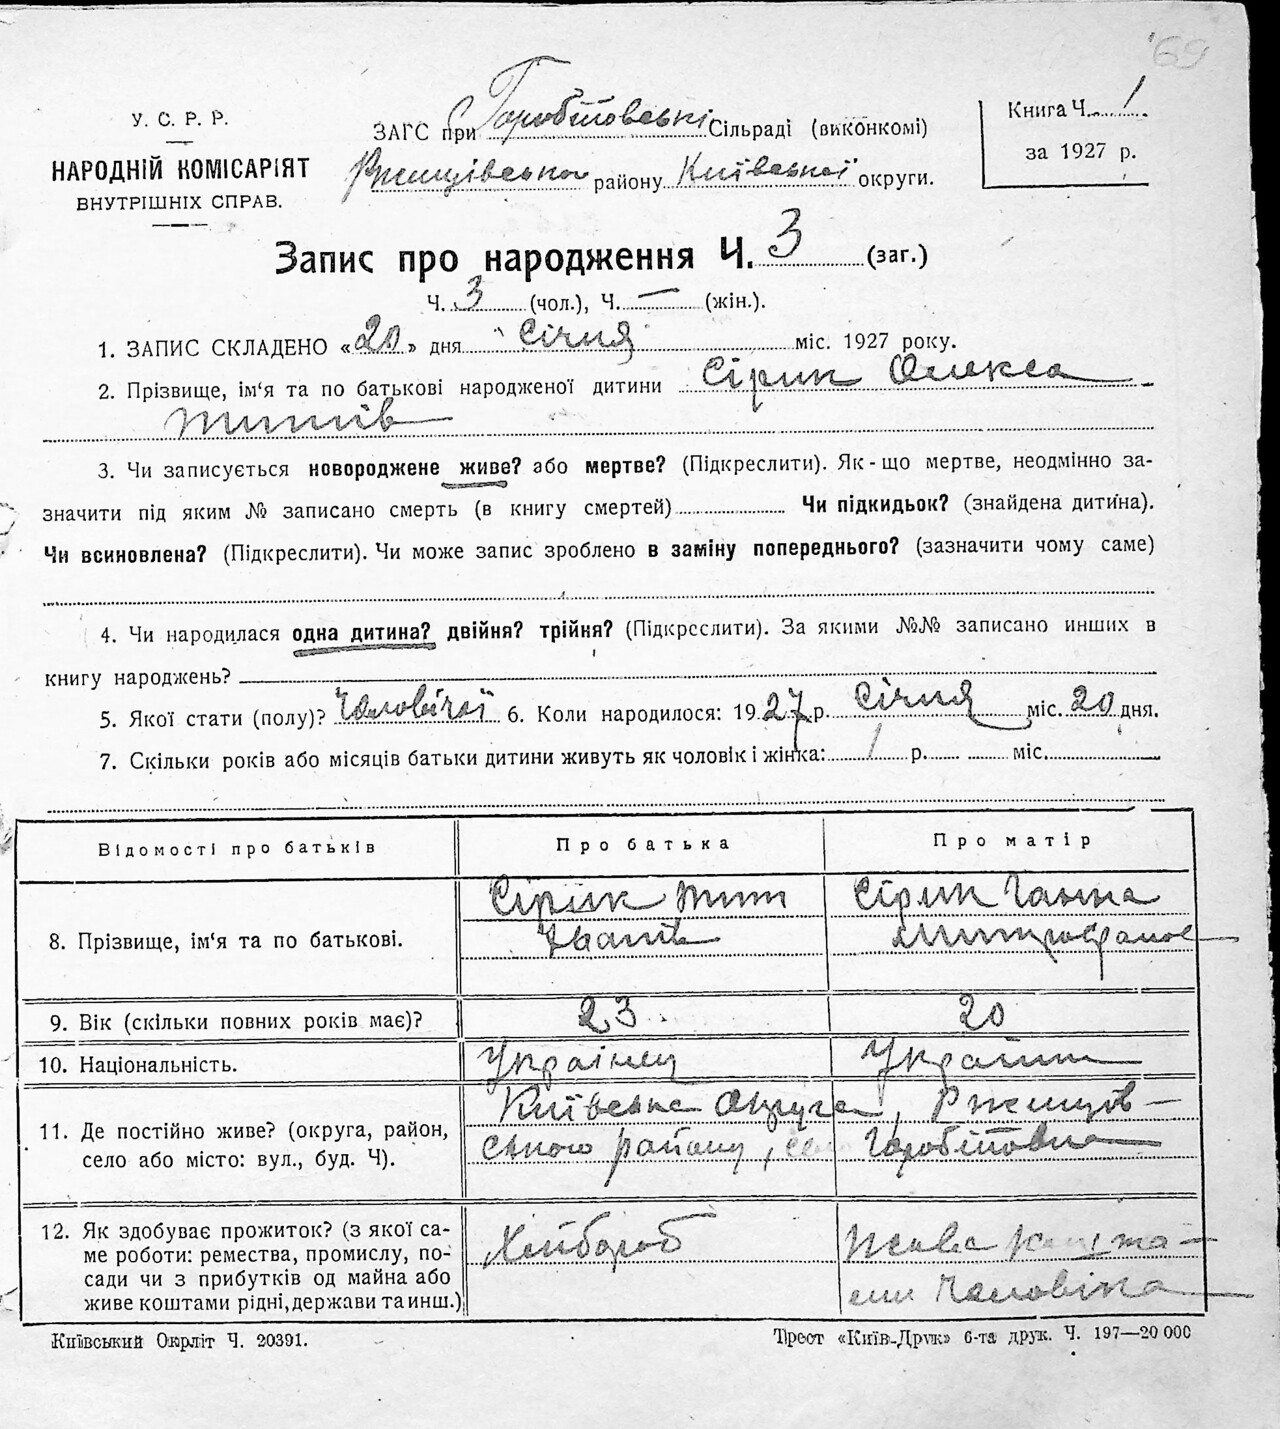 69
У. С. Р. Р.
НАРОДНІЙ КОМІСАРІЯТ
ВНУТРІШНІХ СПРАВ.
ЗАГС при Горобіївські Сільраді (виконкомі)
Ржищівського району Київської округи.
Книга Ч. 1
за 1927 р.
Запис про народження Ч. 3 (заг.)
Ч. 3 (чол.), Ч. — (жін.).
1. ЗАПИС СКЛАДЕНО «20» дня Січня міс. 1927 року.
2. Прізвище, ім‘я та по батькові народженої дитини Сірик Олекса
Титів
3. Чи записується новороджене живе? або мертве? (Підкреслити). Як-що мертве, неодмінно за-
значити під яким № записано смерть (в книгу смертей) Чи підкидьок? (знайдена дитина).
Чи всиновлена? (Підкреслити). Чи може запис зроблено в заміну попереднього? (зазначити чому саме)
4. Чи народилася одна дитина? двійня? трійня? (Підкреслити). За якими №№ записано инших в
книгу народжень?
5. Якої стати (полу)? Чоловічої 6. Коли народилося: 1927 р. Січня міс. 20 дня.
7. Скільки років або місяців батьки дитини живуть як чоловік і жінка: 1 р. міс.
Відомості про батьків Про батька Про матір
8. Прізвище, ім‘я та по батькові. Сірик Тит Івапів Сірик Ганна Митрофанов
9. Вік (скільки повних років має)? 23 20
10. Національність. Українец Україн
11. Де постійно живе? (округа, район,
село або місто: вул., буд. Ч).
Київська Округа, Ржищів—
ського району, село Горобіївка
12. Як здобуває прожиток? (з якої са-
ме роботи: ремества, промислу, по-
сади чи з прибутків од майна або
живе коштами рідні, держави та инш.)
Хлібороб
Жива кошта—
ми Чоловіка
Київський Окрліт Ч. 20391.
Трест «Київ-Друк» 6-та друк. Ч. 197—20 000